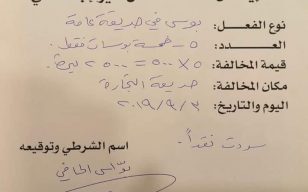 نوع الفعل: بوس في حديقة عامة
العدد: ٥ - خمسة بوسات فقط
قيمة المخالفة: ٥×٥٠٠ = ٢٥٠٠ ليرة
مكان المخالفة: حديقة التجارة
اليوم والتاريخ: ٢٠١٩/٩/٣
سددت نقداً.
اسم الشرطي وتوقيعه